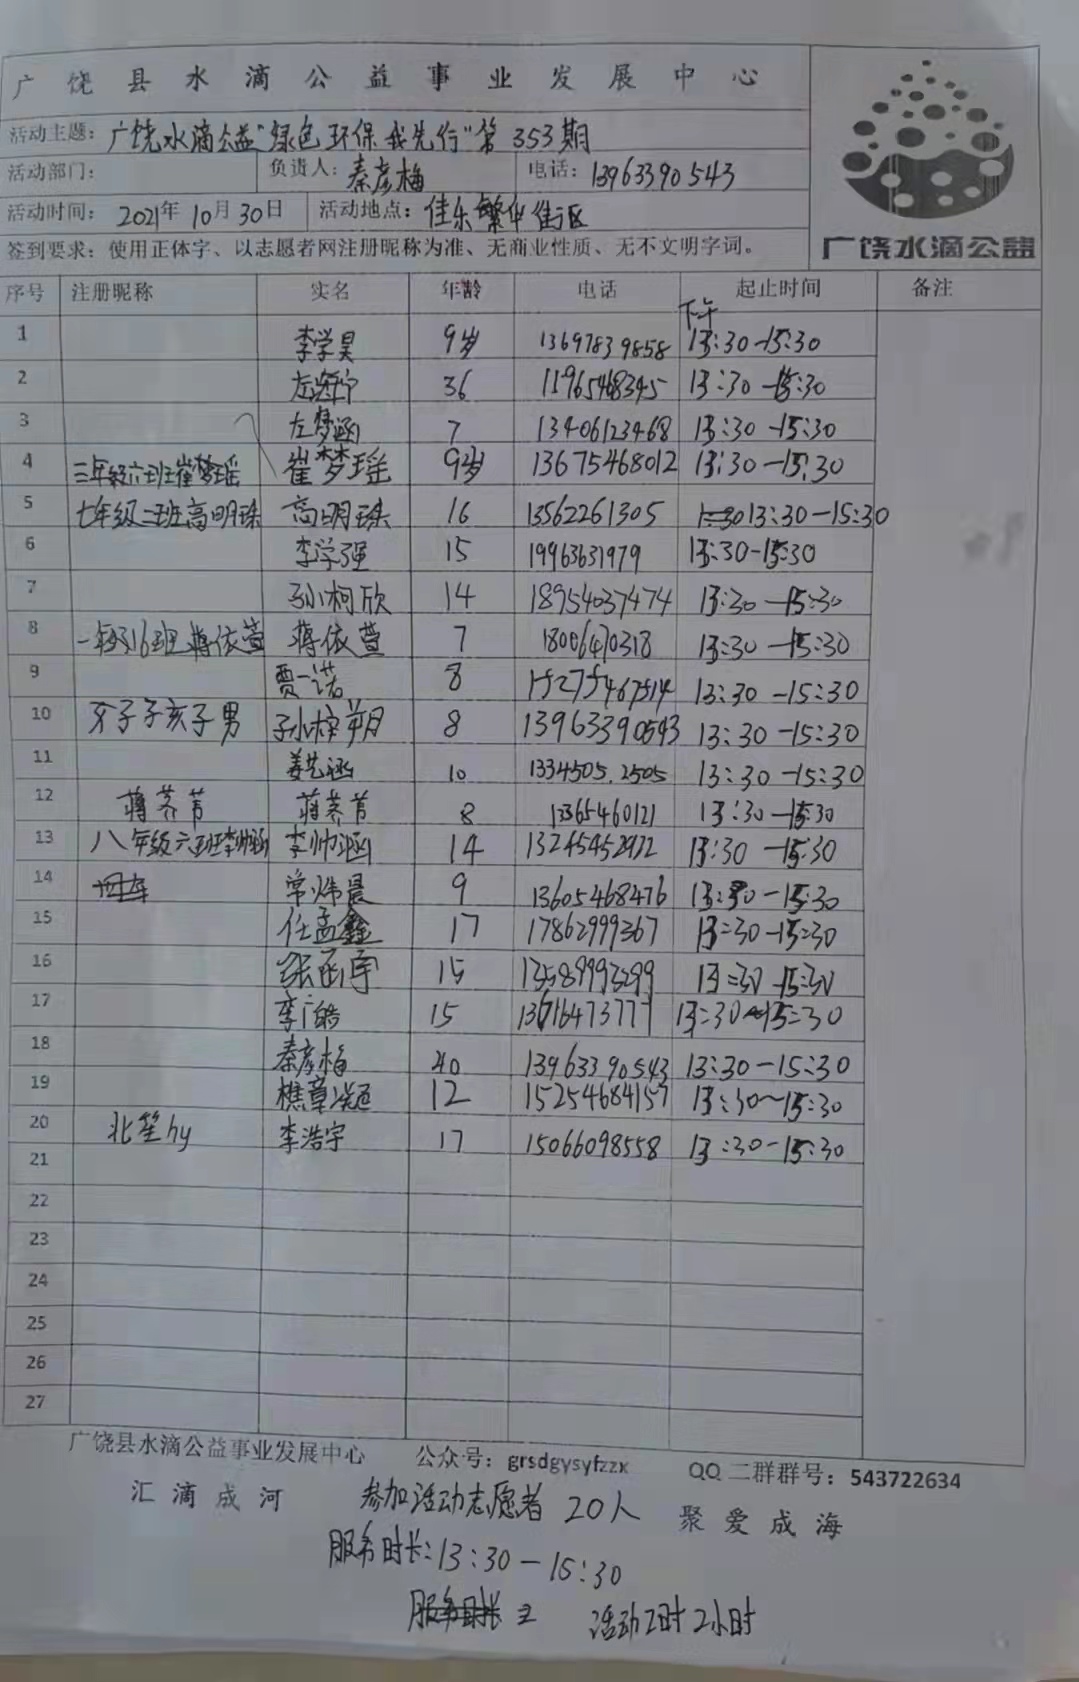 广饶县水滴公益事业发展中心
活动主题：广饶水滴公益"绿色环保我先行"第353期
活动部门： 负责人：秦彦梅 电话：13963390543
活动时间：2021年10月30日 活动地点：佳乐繁华街区
签到要求：使用正体字、以志愿者网注册昵称为准、无商业性质、无不文明字词。
广饶水滴公益
序号 注册昵称 实名 年龄 电话 起止时间 备注
下午
1 李学昊 9岁 13697839858 13:30-15:30
2 左海宁 36 11965468345 13:30-15:30
3 左梦涵 7 13406123468 13:30-15:30
4 三年级六班崔梦瑶 崔梦瑶 9岁 13675468012 13:30-15:30
5 七年级二班高明珠 高明珠 16 13562261305 13:30-15:30
6 李学强 15 19963631979 13:30-15:30
7 孙柯欣 14 18954037474 13:30-15:30
8 一年级16班蒋依萱 蒋依萱 7 18006470318 13:30-15:30
9 贾一诺 8 13:30-15:30
10 牙子子亥子男 孙梓玥 8 13963390543 13:30-15:30
11 姜艺涵 10 1334505.2505 13:30-15:30
12 蒋荞苢 蒋荞苢 8 13365460121 13:30-15:30
13 八年级六班李帅涵 李帅涵 14 13:30-15:30
14 常炜晨 9 13605468476 13:30-15:30
15 任孟鑫 17 17862999367 13:30-15:30
16 15 13589993299 13:30-15:30
17 李广皓 15 13716473777 13:30~15:30
18 秦彦梅 40 13963390543 13:30-15:30
19 12 15254684157 13:30~15:30
20 北笙hy 李浩宇 17 15066098558 13:30-15:30
21
22
23
24
25
26
27
广饶县水滴公益事业发展中心 公众号：grsdgysyfzzx QQ二群群号：543722634
汇滴成河 参加活动志愿者20人 聚爱成海
服务时长：13:30-15:30
活动工时2小时